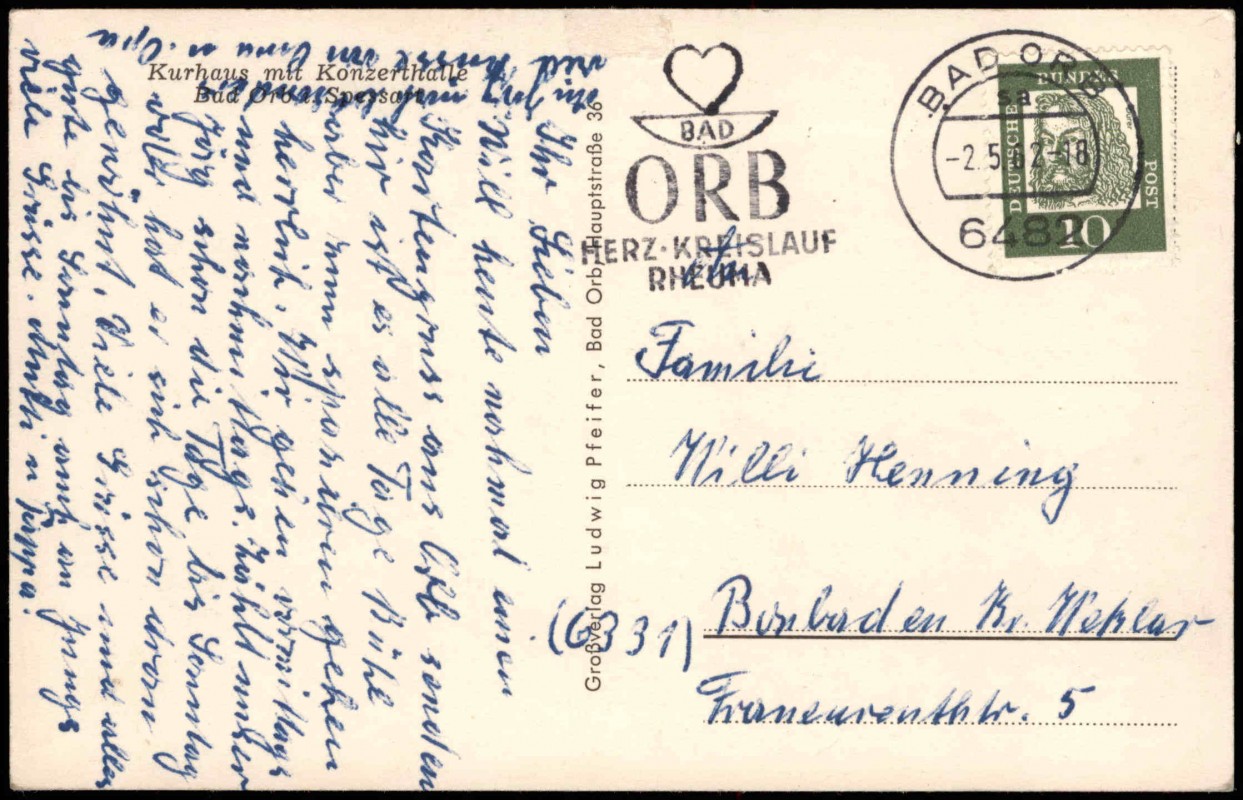 Kurhaus mit Konzerthalle
Bad Orb i. Spessart
Ihr Lieben
Will heute nochmal einen
Kartengruss aus Orb senden
hir ist es alle Tage Kühl
aber zum spazieren gehen
herrlich. Wir gehen vormittags
und nachmittags. Zählt unser
Jörg schon die Tage bis Sonntag
oder hat er sich schon dran
gewöhnt. Viele Grüsse und alles
gute bis Sonntag auch an Jungs
viele Grüsse. Mutti u. Pappa.
viel Küsse von Oma u. Opa
Großverlag Ludwig Pfeifer, Bad Orb, Hauptstraße 36
BAD
ORB
HERZ·KREISLAUF
RHEUMA
BAD ORB
sa
-2.5. 2-18
6482
DEUTSCHE
BUNDES
POST
10
An
Familie
Willi Henning
(6331)
Bonbaden Kr. Wetzlar
5